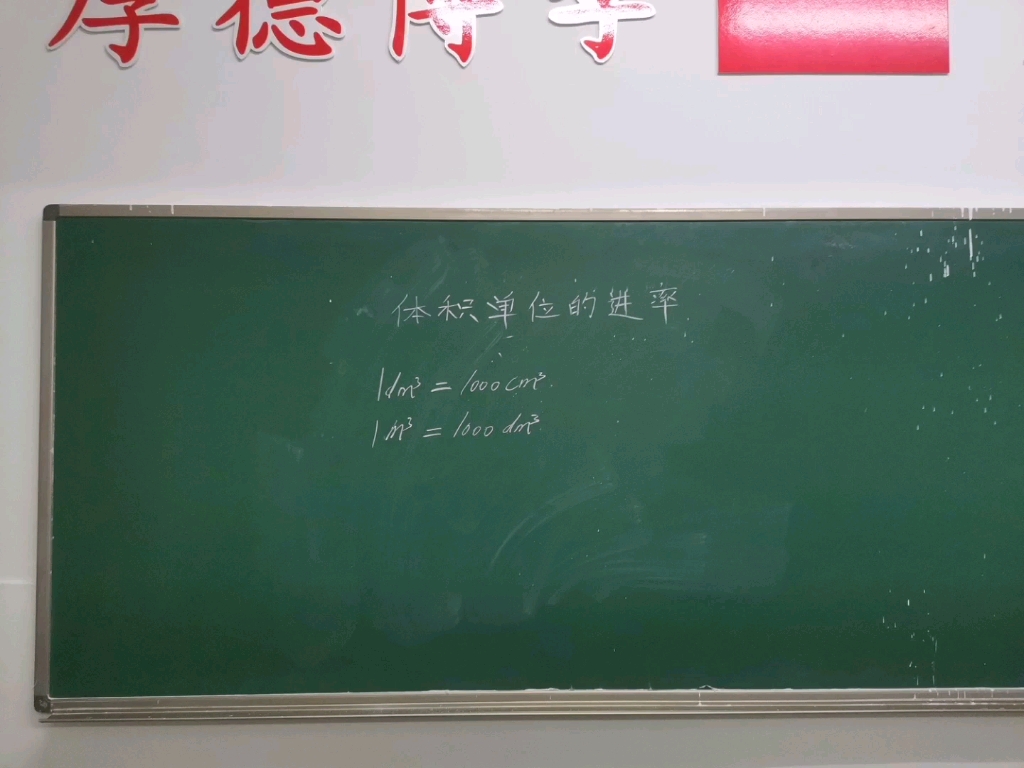 厚德博学
体积单位的进率
1dm³=1000cm³.
1m³=1000dm³.